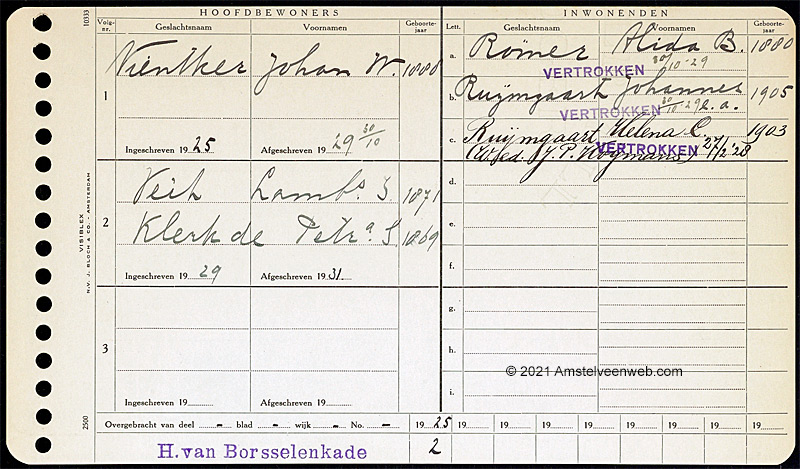 HOOFDBEWONERS
INWONENDEN
Volg-nr. Geslachtsnaam Voornamen Geboorte-jaar
Lett. Geslachtsnaam Voornamen Geboorte-jaar
10333
1
Vientker Johan W. 1888
Ingeschreven 19 25 Afgeschreven 19 29 30/10
a. Römer Alida B. 1880
VERTROKKEN 30/10-29
b. Ruijmgaart Johannes 1905
VERTROKKEN 30/10 29 e.a.
c. Ruijmgaart Helena C. 1903
VERTROKKEN 27/12 '28
2
Veth Lambs. J 1871
Klerk de Petr.a J 1869
Ingeschreven 19 29 Afgeschreven 19 31
d.
e.
f.
3
Ingeschreven 19 Afgeschreven 19
g.
h.
i.
© 2021 Amstelveenweb.com
VISIBLEX
N.V. J. BLOCH & CO. - AMSTERDAM
2500
Overgebracht van deel - blad - wijk - No. - 19 25 19 19 19 19 19 19 19
H. van Borsselenkade 2